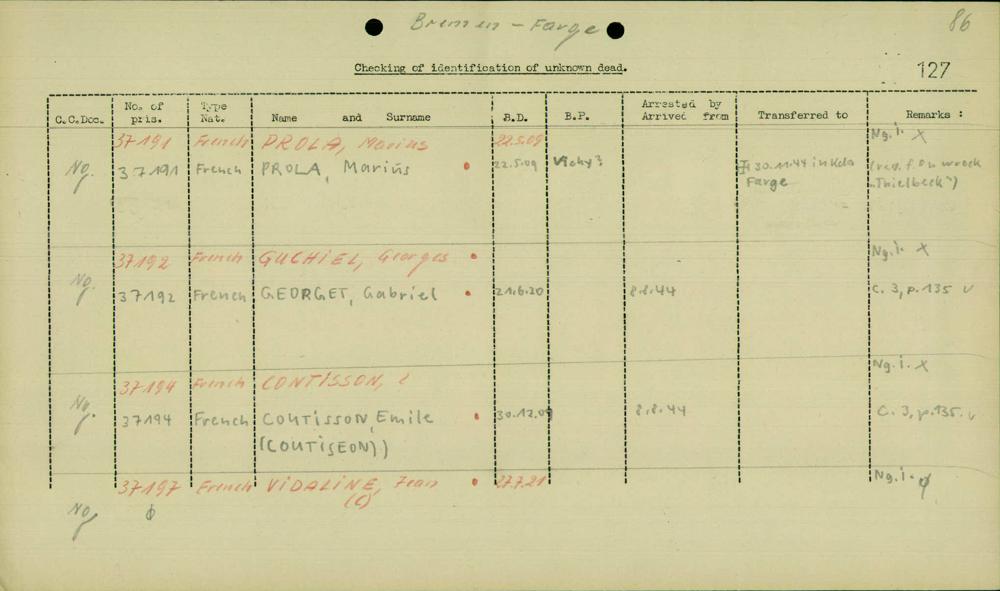 Bremen - Farge
86
Checking of identification of unknown dead.
127
C.C.Doc. No. of pris. Type Nat. Name and Surname B.D. B.P. Arrested by Arrived from Transferred to Remarks :
37191 French PROLA, Marius 22.5.09 Ng. i. x
Ng. 37191 French PROLA, Marius 22.5.09 Vichy? 30.11.44 in Kdo Farge (rec. f. on wreck "Thielbeck")
37192 French GUCHIEL, Georges Ng. i. x
Ng. 37192 French GEORGET, Gabriel 21.6.20 8.8.44 C. 3, p. 135 v
37194 French CONTISSON, Ng. i. x
Ng. 37194 French COUTISSON, Emile 30.12.09 8.8.44 C. 3, p. 135. v
(COUTISEON))
37197 French VIDALINE, Jean 27.7.21 Ng. i. ø
(C)
Ng. ø